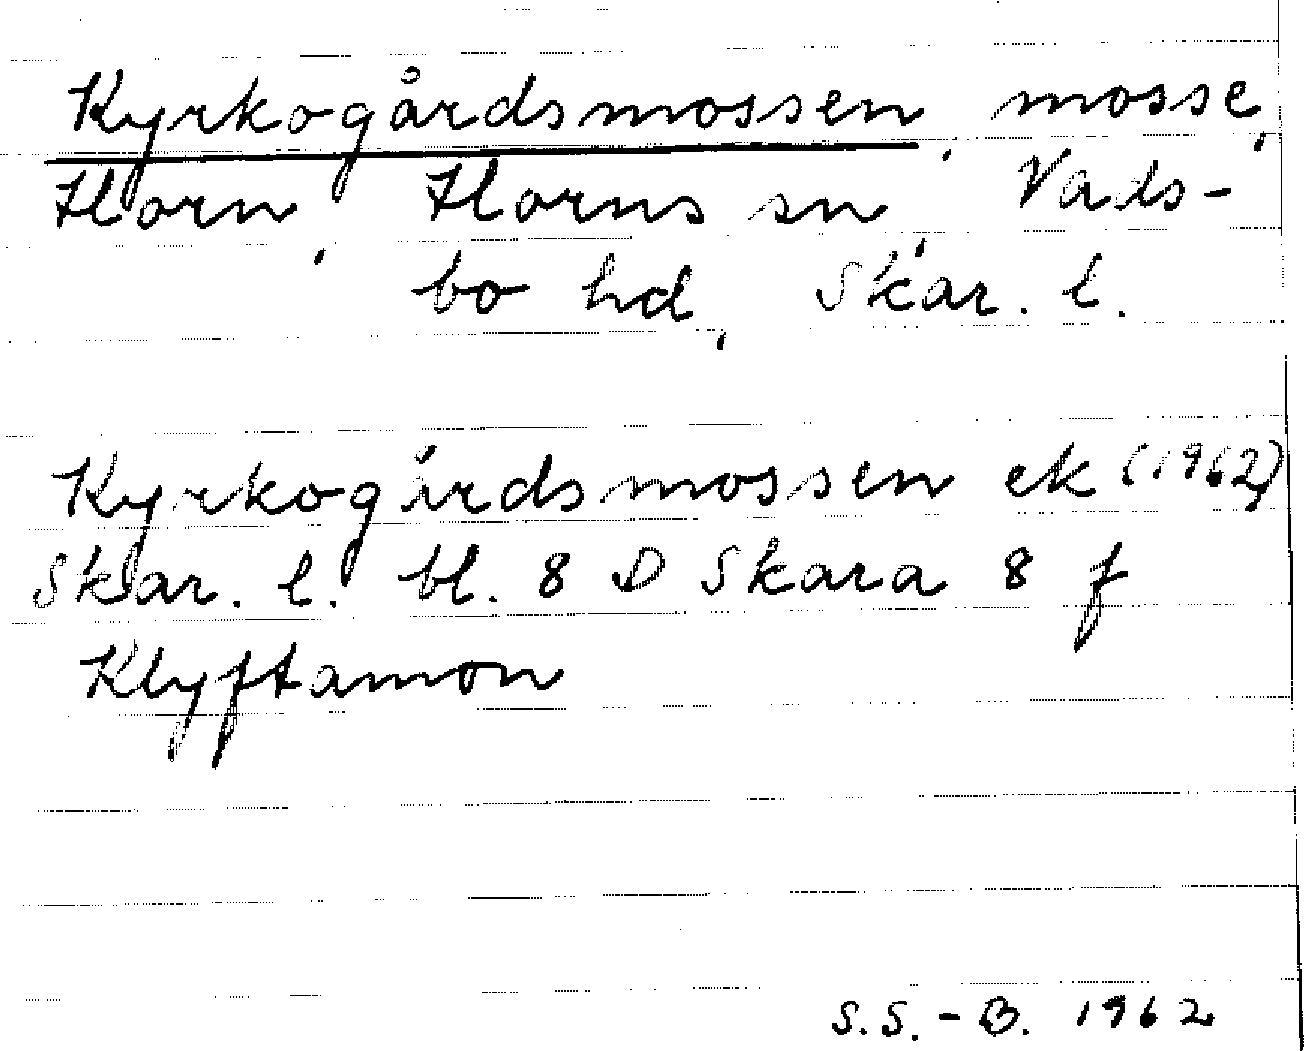 Kyrkogårdsmossen, mosse,
Horn, Horns sn, Vads-
bo hd, Skar. l.
Kyrkogårdsmossen ek (1962)
Skar. l. bl. 8 D Skara 8 f
Klyftamon
S.S.-B. 1962